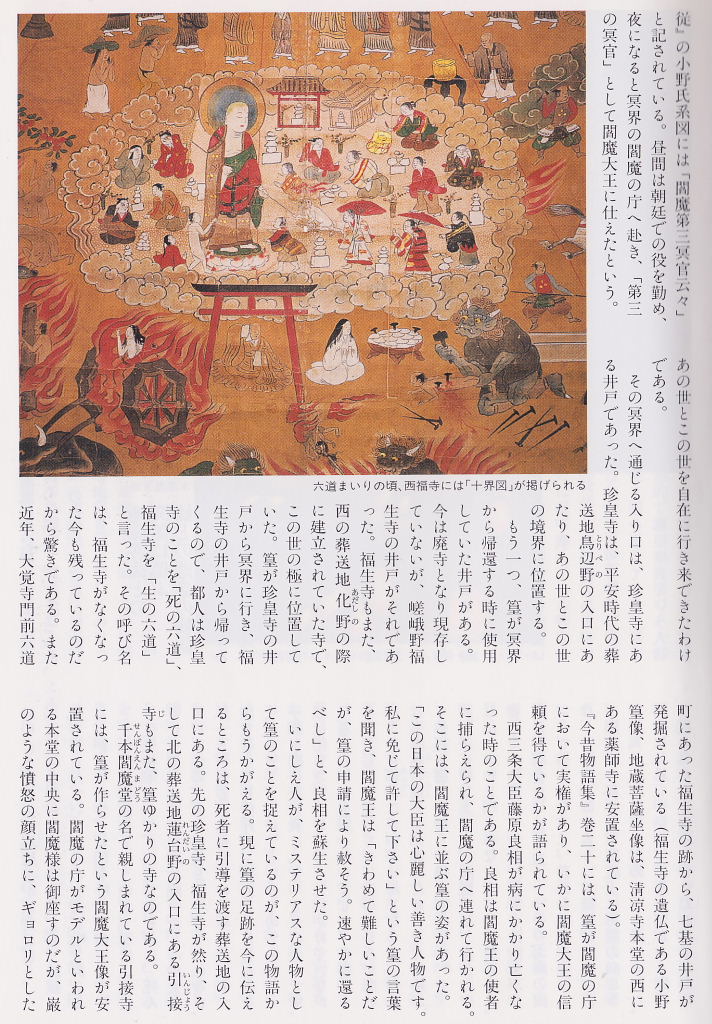 従』の小野氏系図には「閻魔第三冥官云々」
と記されている。昼間は朝廷での役を勤め、
夜になると冥界の閻魔の庁へ赴き、「第三
の冥官」として閻魔大王に仕えたという。
あの世とこの世を自在に行き来できたわけ
である。
その冥界へ通じる入り口は、珍皇寺にあ
る井戸であった。珍皇寺は、平安時代の葬
送地鳥辺野の入口にあ
とりべの
たり、あの世とこの世
の境界に位置する。
もう一つ、篁が冥界
から帰還する時に使用
していた井戸がある。
今は廃寺となり現存し
ていないが、嵯峨野福
生寺の井戸がそれであ
った。福生寺もまた、
西の葬送地化野の際
あだしの
に建立されていた寺で、
この世の極に位置して
いた。篁が珍皇寺の井
戸から冥界に行き、福
生寺の井戸から帰って
くるので、都人は珍皇
寺のことを「死の六道」、
福生寺を「生の六道」
と言った。その呼び名
は、福生寺がなくなっ
た今も残っているのだ
から驚きである。また
近年、大覚寺門前六道
六道まいりの頃、西福寺には「十界図」が掲げられる
町にあった福生寺の跡から、七基の井戸が
発掘されている（福生寺の遺仏である小野
篁像、地蔵菩薩坐像は、清凉寺本堂の西に
ある薬師寺に安置されている）。
『今昔物語集』巻二十には、篁が閻魔の庁
において実権があり、いかに閻魔大王の信
頼を得ているかが語られている。
西三条大臣藤原良相が病にかかり亡くな
った時のことである。良相は閻魔王の使者
に捕らえられ、閻魔の庁へ連れて行かれる。
そこには、閻魔王に並ぶ篁の姿があった。
「この日本の大臣は心麗しい善き人物です。
私に免じて許して下さい」という篁の言葉
を聞き、閻魔王は「きわめて難しいことだ
が、篁の申請により赦そう。速やかに還る
べし」と、良相を蘇生させた。
いにしえ人が、ミステリアスな人物とし
て篁のことを捉えているのが、この物語か
らもうかがえる。現に篁の足跡を今に伝え
るところは、死者に引導を渡す葬送地の入
口にある。先の珍皇寺、福生寺が然り、そ
して北の葬送地蓮台野の入口にある引接
れんだいの
いんじょう
寺もまた、篁ゆかりの寺なのである。
じ
千本閻魔堂の名で親しまれている引接寺
せんぼんえんまどう
には、篁が作らせたという閻魔大王像が安
置されている。閻魔の庁がモデルといわれ
る本堂の中央に閻魔様は御座すのだが、厳
のような憤怒の顔立ちに、ギョロリとした